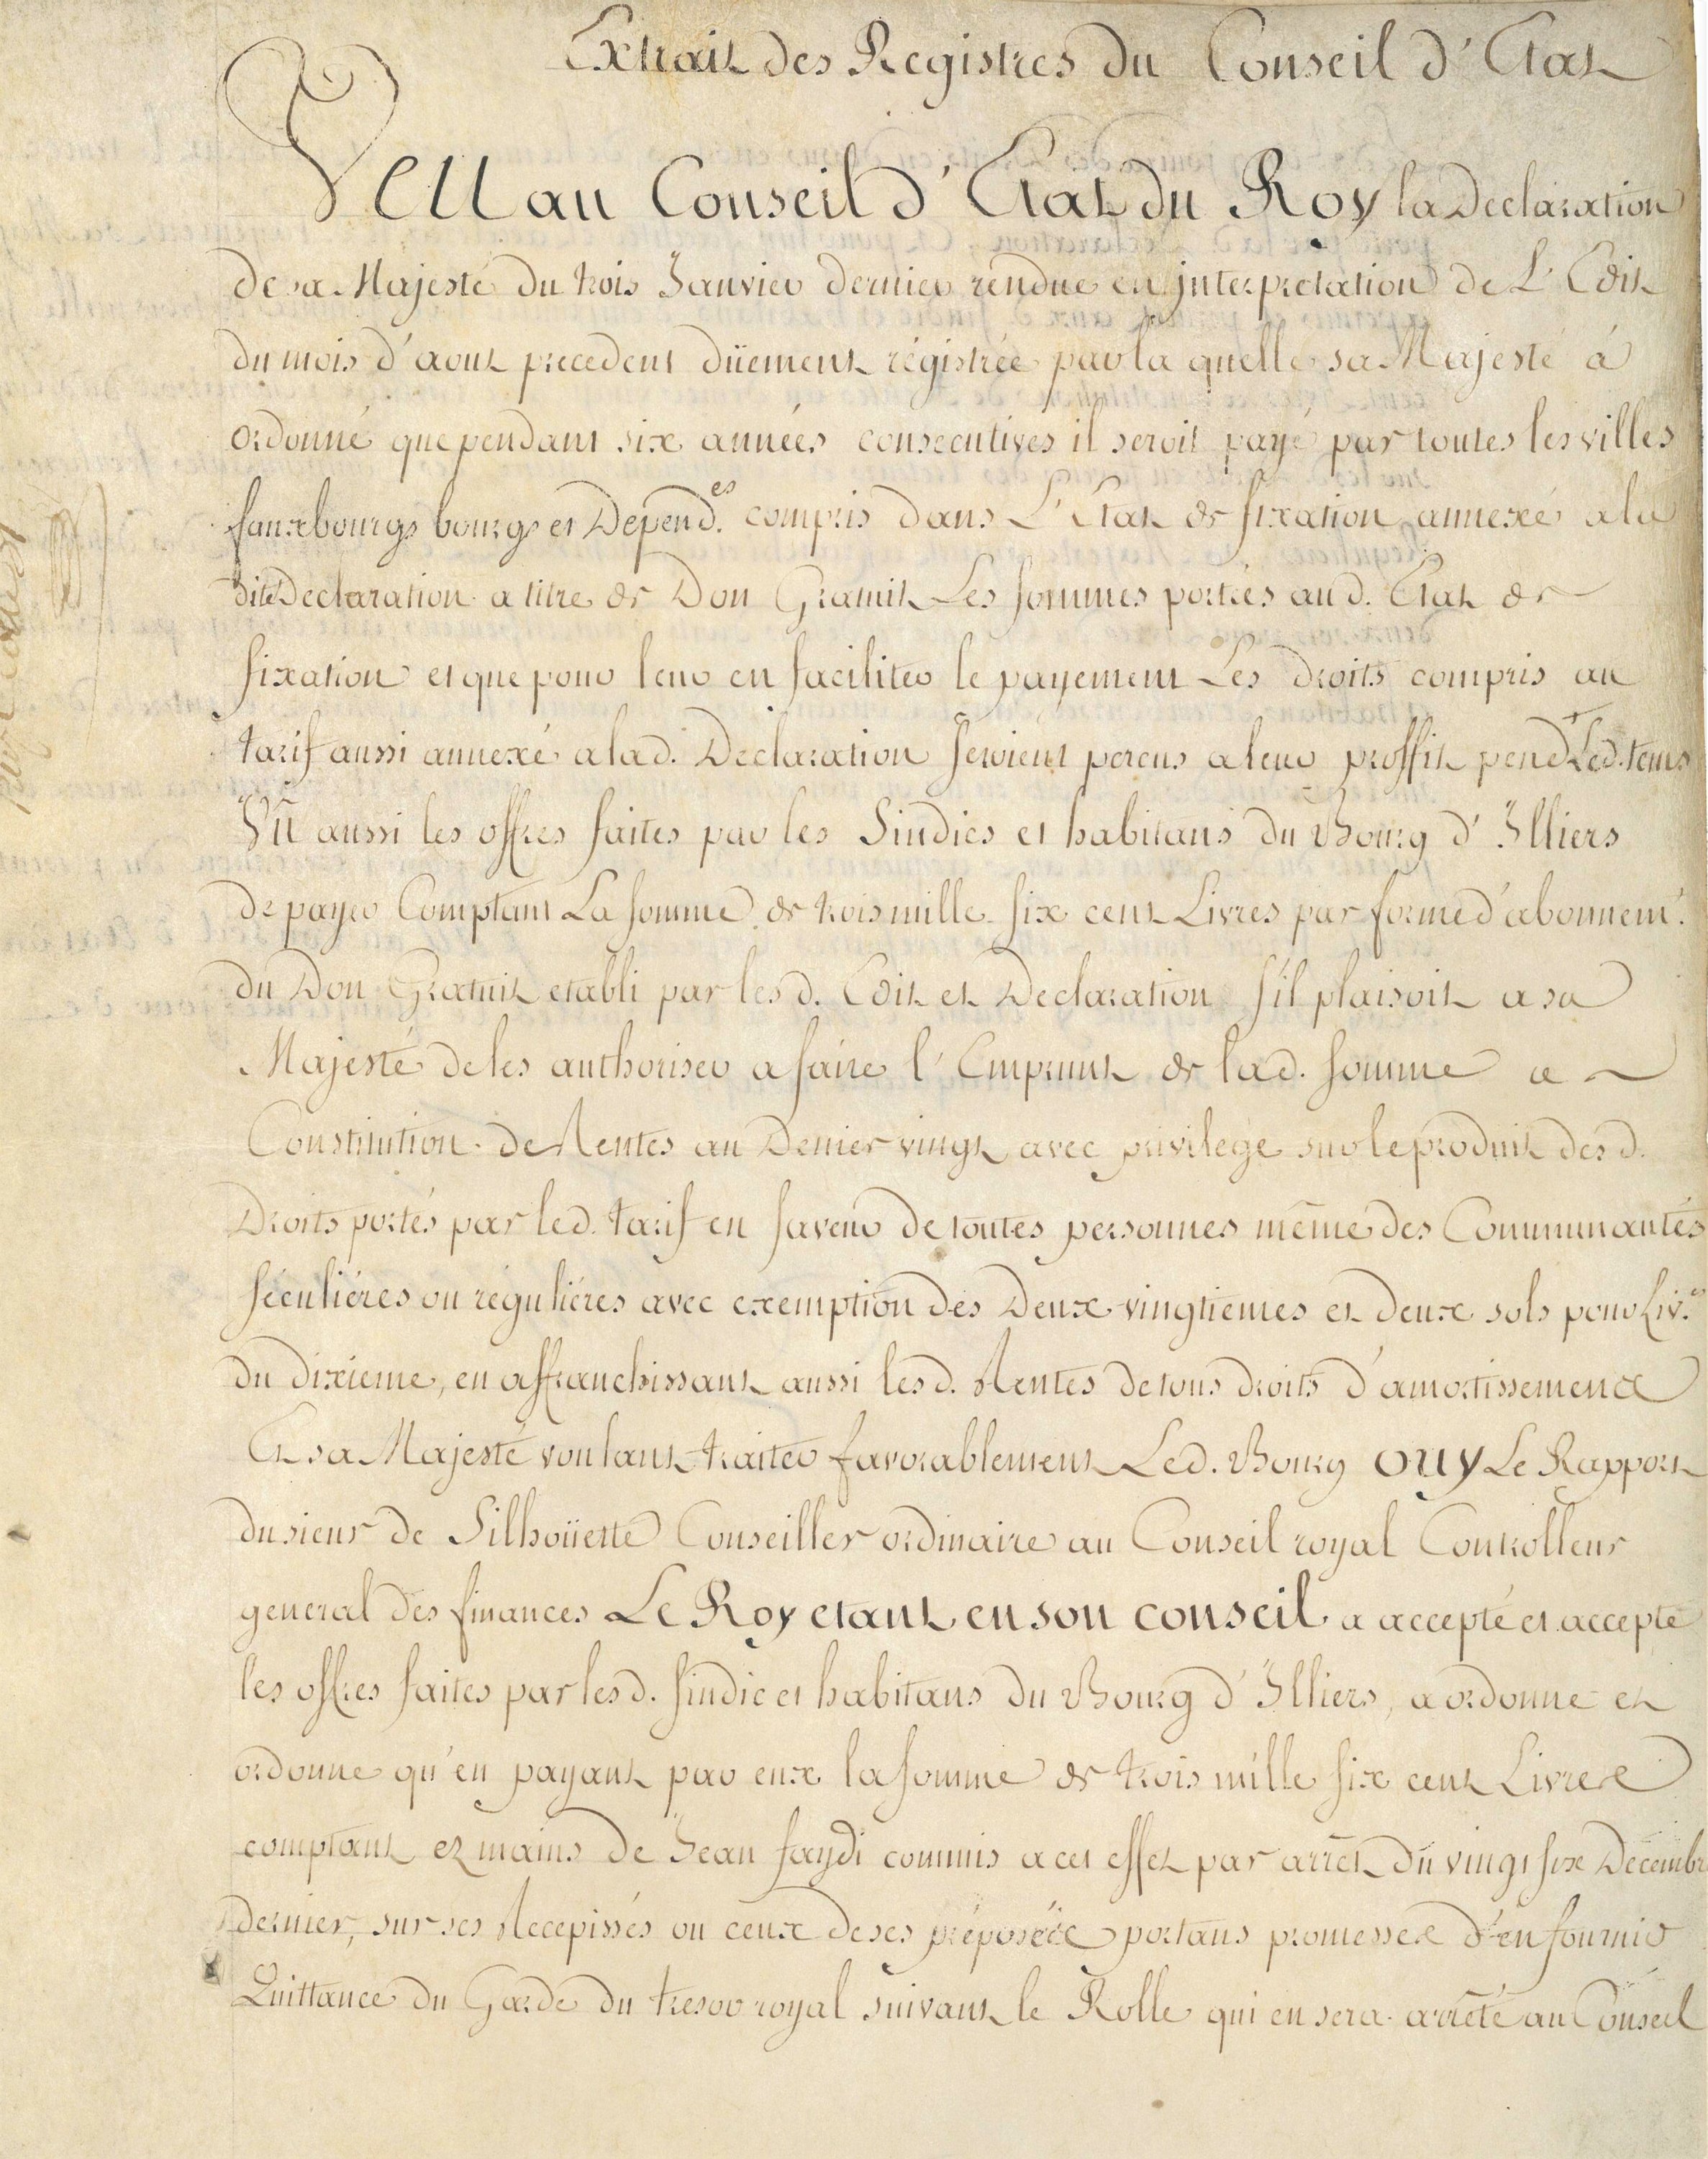 Extrait des Registres du Conseil d'Etat
Veu au Conseil d'Etat du Roy la Declaration
de sa Majesté du trois Janvier dernier rendue en jnterpretation de L'Edit
du mois d'aout precedent düement régistrée par la quelle sa Majesté á
ordonné que pendant six années consecutives il seroit payé par toutes les villes
fauxbourgs bourgs et Depend.es compris dans L'Etat de fixation annexé a la
dite Declaration a titre de Don Gratuit Les sommes portées aud. Etat de
fixation et que pour leur en faciliter le payement Les droits compris au
tarif aussi annexé a lad. Declaration seroient percus a leur proffit pendt. Led. tems
Vû aussi les offres faites par les Sindics et habitans du Bourg d'Illiers
de payer Comptant La somme de trois mille six cent Livres par forme d'abonnemt.
du Don Gratuit etabli par lesd. Edit et Declaration s'il plaisoit a sa
Majesté de les authoriser a faire l'Emprunt de lad. somme a
Constitution de Rentes au Denier vingt avec privilege sur le produit desd.
Droits portés par led. tarif en faveur de toutes personnes même des Communautés
séculiéres ou réguliéres avec exemption des Deux vingtiemes et deux sols pour Liv.es
du dixieme, en affranchissant aussi lesd. Rentes de tous droits d'amortissement
Et sa Majesté voulant traiter favorablement Led. Bourg ouy Le Rapport
du sieur de Silhoüette Conseiller ordinaire au Conseil royal Controlleur
general des finances Le Roy etant en son conseil a accepté et accepte
les offres faites par lesd. sindic et habitans du Bourg d'Illiers, a ordonne et
ordonne qu'en payant par eux la somme de trois mille six cent Livres
comptant ez mains de Jean faydi commis a cet effet par arrêt du vingt six Decembre
dernier, sur ses Recepissés ou ceux de ses préposés portans promesses d'en fournir
Quittance du Garde du tresor royal suivant le Rolle qui en sera arrêté au Conseil